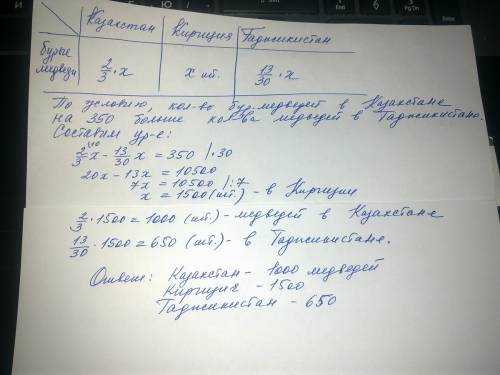 Казахстан Киргизия Таджикистан
бурые медведи 2/3 · x x шт. 13/30 · x
По условию, кол-во бур. медведей в Казахстане
на 350 больше кол-ва медведей в Таджикистане.
Составим ур-е:
2/3 \10 x - 13/30 x = 350 | · 30
20x - 13x = 10500
7x = 10500 | : 7
x = 1500 (шт.) - в Киргизии
2/3 · 1500 = 1000 (шт.) - медведей в Казахстане
13/30 · 1500 = 650 (шт.) - в Таджикистане.
Ответ: Казахстан - 1000 медведей
Киргизия - 1500
Таджикистан - 650